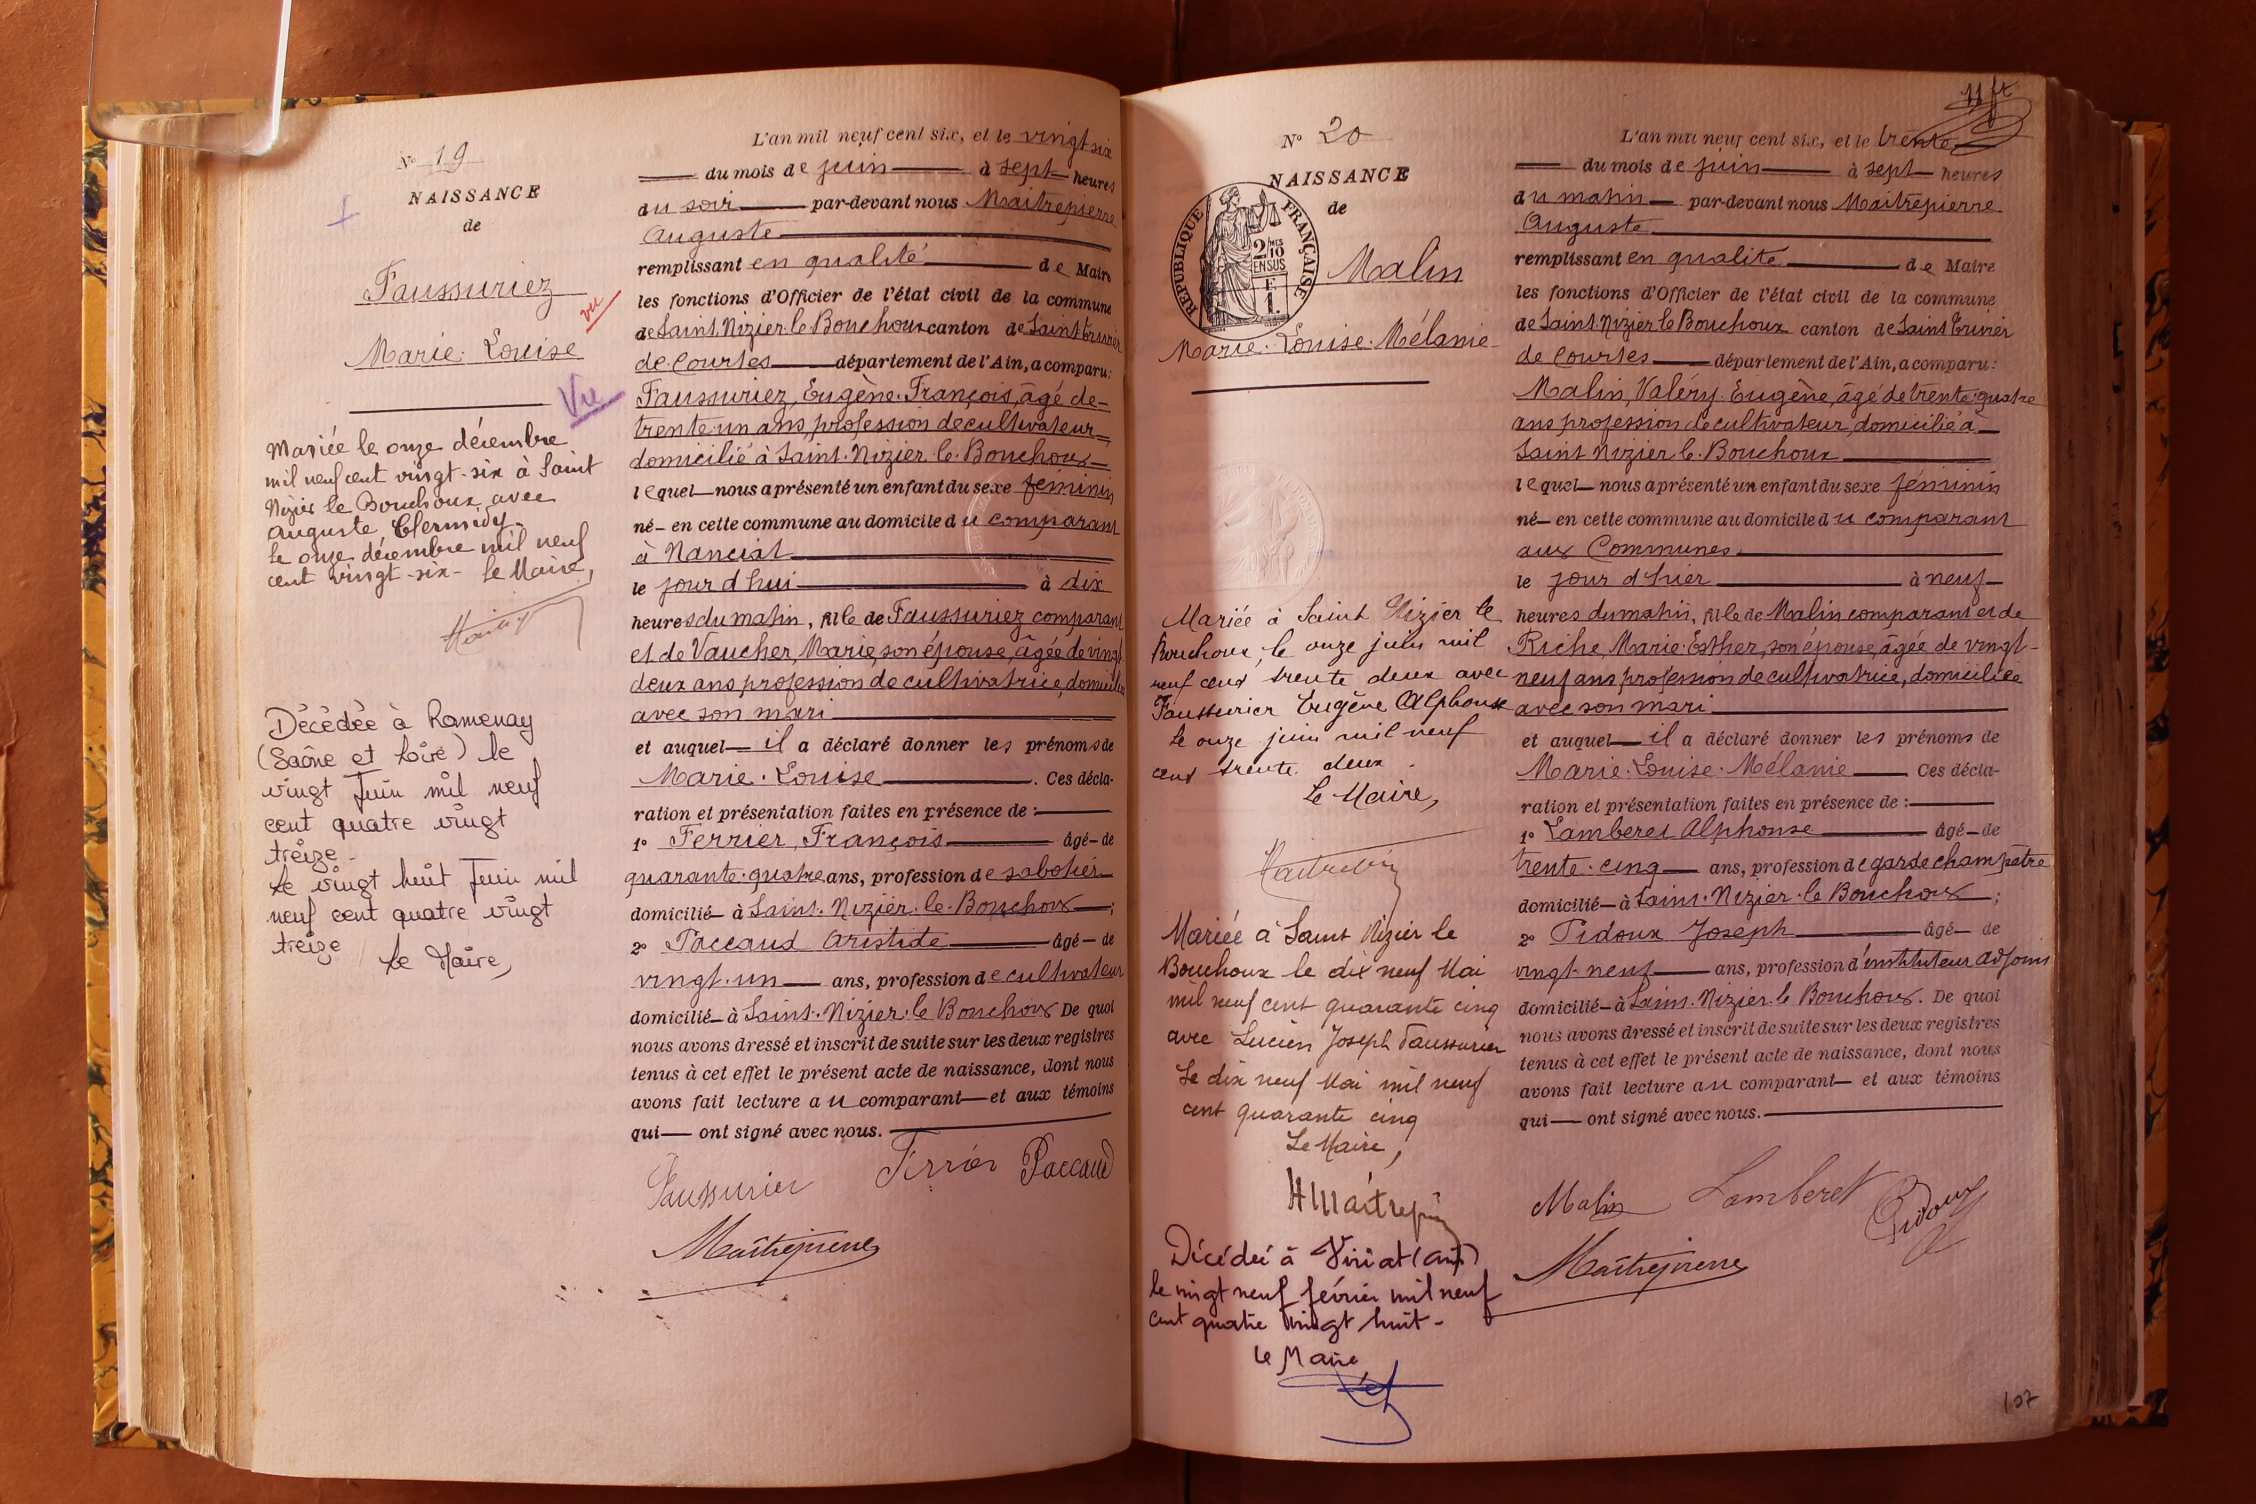 N° 19
NAISSANCE
de
Faussuriez
vu
Marie. Louise
Vu
Mariée le onze décembre
mil neuf cent vingt-six à Saint
Nizier le Bouchoux avec
Auguste Clermidy
Le onze décembre mil neuf
cent vingt-six - Le Maire,
Décédée à Romenay
(Saône et Loire) le
vingt Juin mil neuf
cent quatre vingt
treize -
Le vingt huit Juin mil
neuf cent quatre vingt
treize
Le Maire,
L'an mil neuf cent six, et le vingt six
du mois de juin à sept heures
du soir par-devant nous Maitrepierre
Auguste
remplissant en qualité de Maire
les fonctions d'Officier de l'état civil de la commune
de Saint. Nizier le Bouchoux canton de Saint Trivier
de Courtes département de l'Ain, a comparu:
Faussuriez, Eugène. François, âgé de
trente un ans, profession de cultivateur
domicilié à Saint. Nizier. le. Bouchoux
lequel nous a présenté un enfant du sexe féminin
né en cette commune au domicile du comparant
à Nanciat
le jour d'hui à dix
heures du matin, fille de Faussuriez comparant
et de Vaucher, Marie, son épouse, âgée de vingt
deux ans profession de cultivatrice, domiciliée
avec son mari
et auquel il a déclaré donner les prénoms de
Marie. Louise. Ces décla-
ration et présentation faites en présence de :
1° Ferrier, François âgé de
quarante. quatre ans, profession de sabotier
domicilié à Saint. Nizier. le. Bouchoux ;
2° Paccaud Aristide âgé de
vingt. un ans, profession de cultivateur
domicilié à Saint. Nizier. le Bouchoux De quoi
nous avons dressé et inscrit de suite sur les deux registres
tenus à cet effet le présent acte de naissance, dont nous
avons fait lecture au comparant et aux témoins
qui ont signé avec nous.
Faussurier Ferrier Paccaud
Maîtrepierre
11 ft
N° 20
NAISSANCE
de
RÉPUBLIQUE FRANÇAISE
2/10 MES
EN SUS
Malin
Marie. Louise. Mélanie
Mariée à Saint Nizier le
Bouchoux, le onze juin mil
neuf cent trente deux avec
Faussurier Eugène Alphonse
Le onze juin mil neuf
cent trente deux.
Le Maire,
Mariée à Saint Nizier le
Bouchoux le dix neuf Mai
mil neuf cent quarante cinq
avec Lucien Joseph Faussurier
Le dix neuf Mai mil neuf
cent quarante cinq
Le Maire,
Décédée à Viriat (Ain)
le vingt neuf février mil neuf
cent quatre vingt huit -
Le Maire
L'an mil neuf cent six, et le trente
du mois de juin à sept heures
du matin par-devant nous Maitrepierre
Auguste
remplissant en qualité de Maire
les fonctions d'Officier de l'état civil de la commune
de Saint. Nizier le Bouchoux canton de Saint Trivier
de Courtes département de l'Ain, a comparu:
Malin, Valéry. Eugène, âgé de trente. quatre
ans profession de cultivateur, domicilié à
Saint Nizier le. Bouchoux
lequel nous a présenté un enfant du sexe féminin
né en cette commune au domicile du comparant
aux Communes
le jour d'hier à neuf
heures du matin, fille de Malin comparant et de
Riche, Marie. Esther, son épouse, âgée de vingt-
neuf ans profession de cultivatrice, domiciliée
avec son mari
et auquel il a déclaré donner les prénoms de
Marie. Louise. Mélanie Ces décla-
ration et présentation faites en présence de :
1° Lamberet Alphonse âgé de
trente. cinq ans, profession de garde champêtre
domicilié à Saint. Nizier. le Bouchoux ;
2° Pidoux Joseph âgé de
vingt. neuf ans, profession d'instituteur adjoint
domicilié à Saint. Nizier. le Bouchoux. De quoi
nous avons dressé et inscrit de suite sur les deux registres
tenus à cet effet le présent acte de naissance, dont nous
avons fait lecture au comparant et aux témoins
qui ont signé avec nous.
Malin Lamberet Pidoux
Maîtrepierre
107